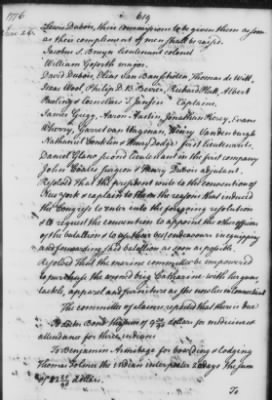 1776 619
June 26. Lewis Dubois, their commissions to be given them as soon
as their complement of men shall be raised.
Jacobus S. Bruyn lieutenant colonel
William Goforth major.
David Dubois, Elias Van Benschoten, Thomas de Witt,
Isaac Wool, Philip D. B. Bevier, Richard Platt, Albert
Pauling & Cornelius T. Jansen Captains,
James Gregg, Aaron Austin, Jonathan Piercy, Evans
Wherry, Garret van Wagenan, Henry Vandenburgh
Nathaniel Conklin & Henry Dodge first lieutenants.
Daniel Gano second lieutenant in the first company
John Coates surgeon & Henry Dubois adjutant.
Resolved That the president write to the convention of
New York & explain to them the reasons that induced
the Congress to enter into the foregoing resolution
& request the convention to appoint the other officers
of the battalion & to use their best endeavours in equipping
and forwarding the battalion as soon as possible
Resolved That the marine committee be empowered
to purchase the armed brig Catharine with her guns,
tackle, apparel and furniture as she now lies in Connecticut
The committee of claims reported that there is due
To Doctor Bond the sum of dollars for medicines &
attendance for three indians
To Benjamin Armitage for boarding & lodging
Thomas the indian interpreter days the sum
of dollars.
To